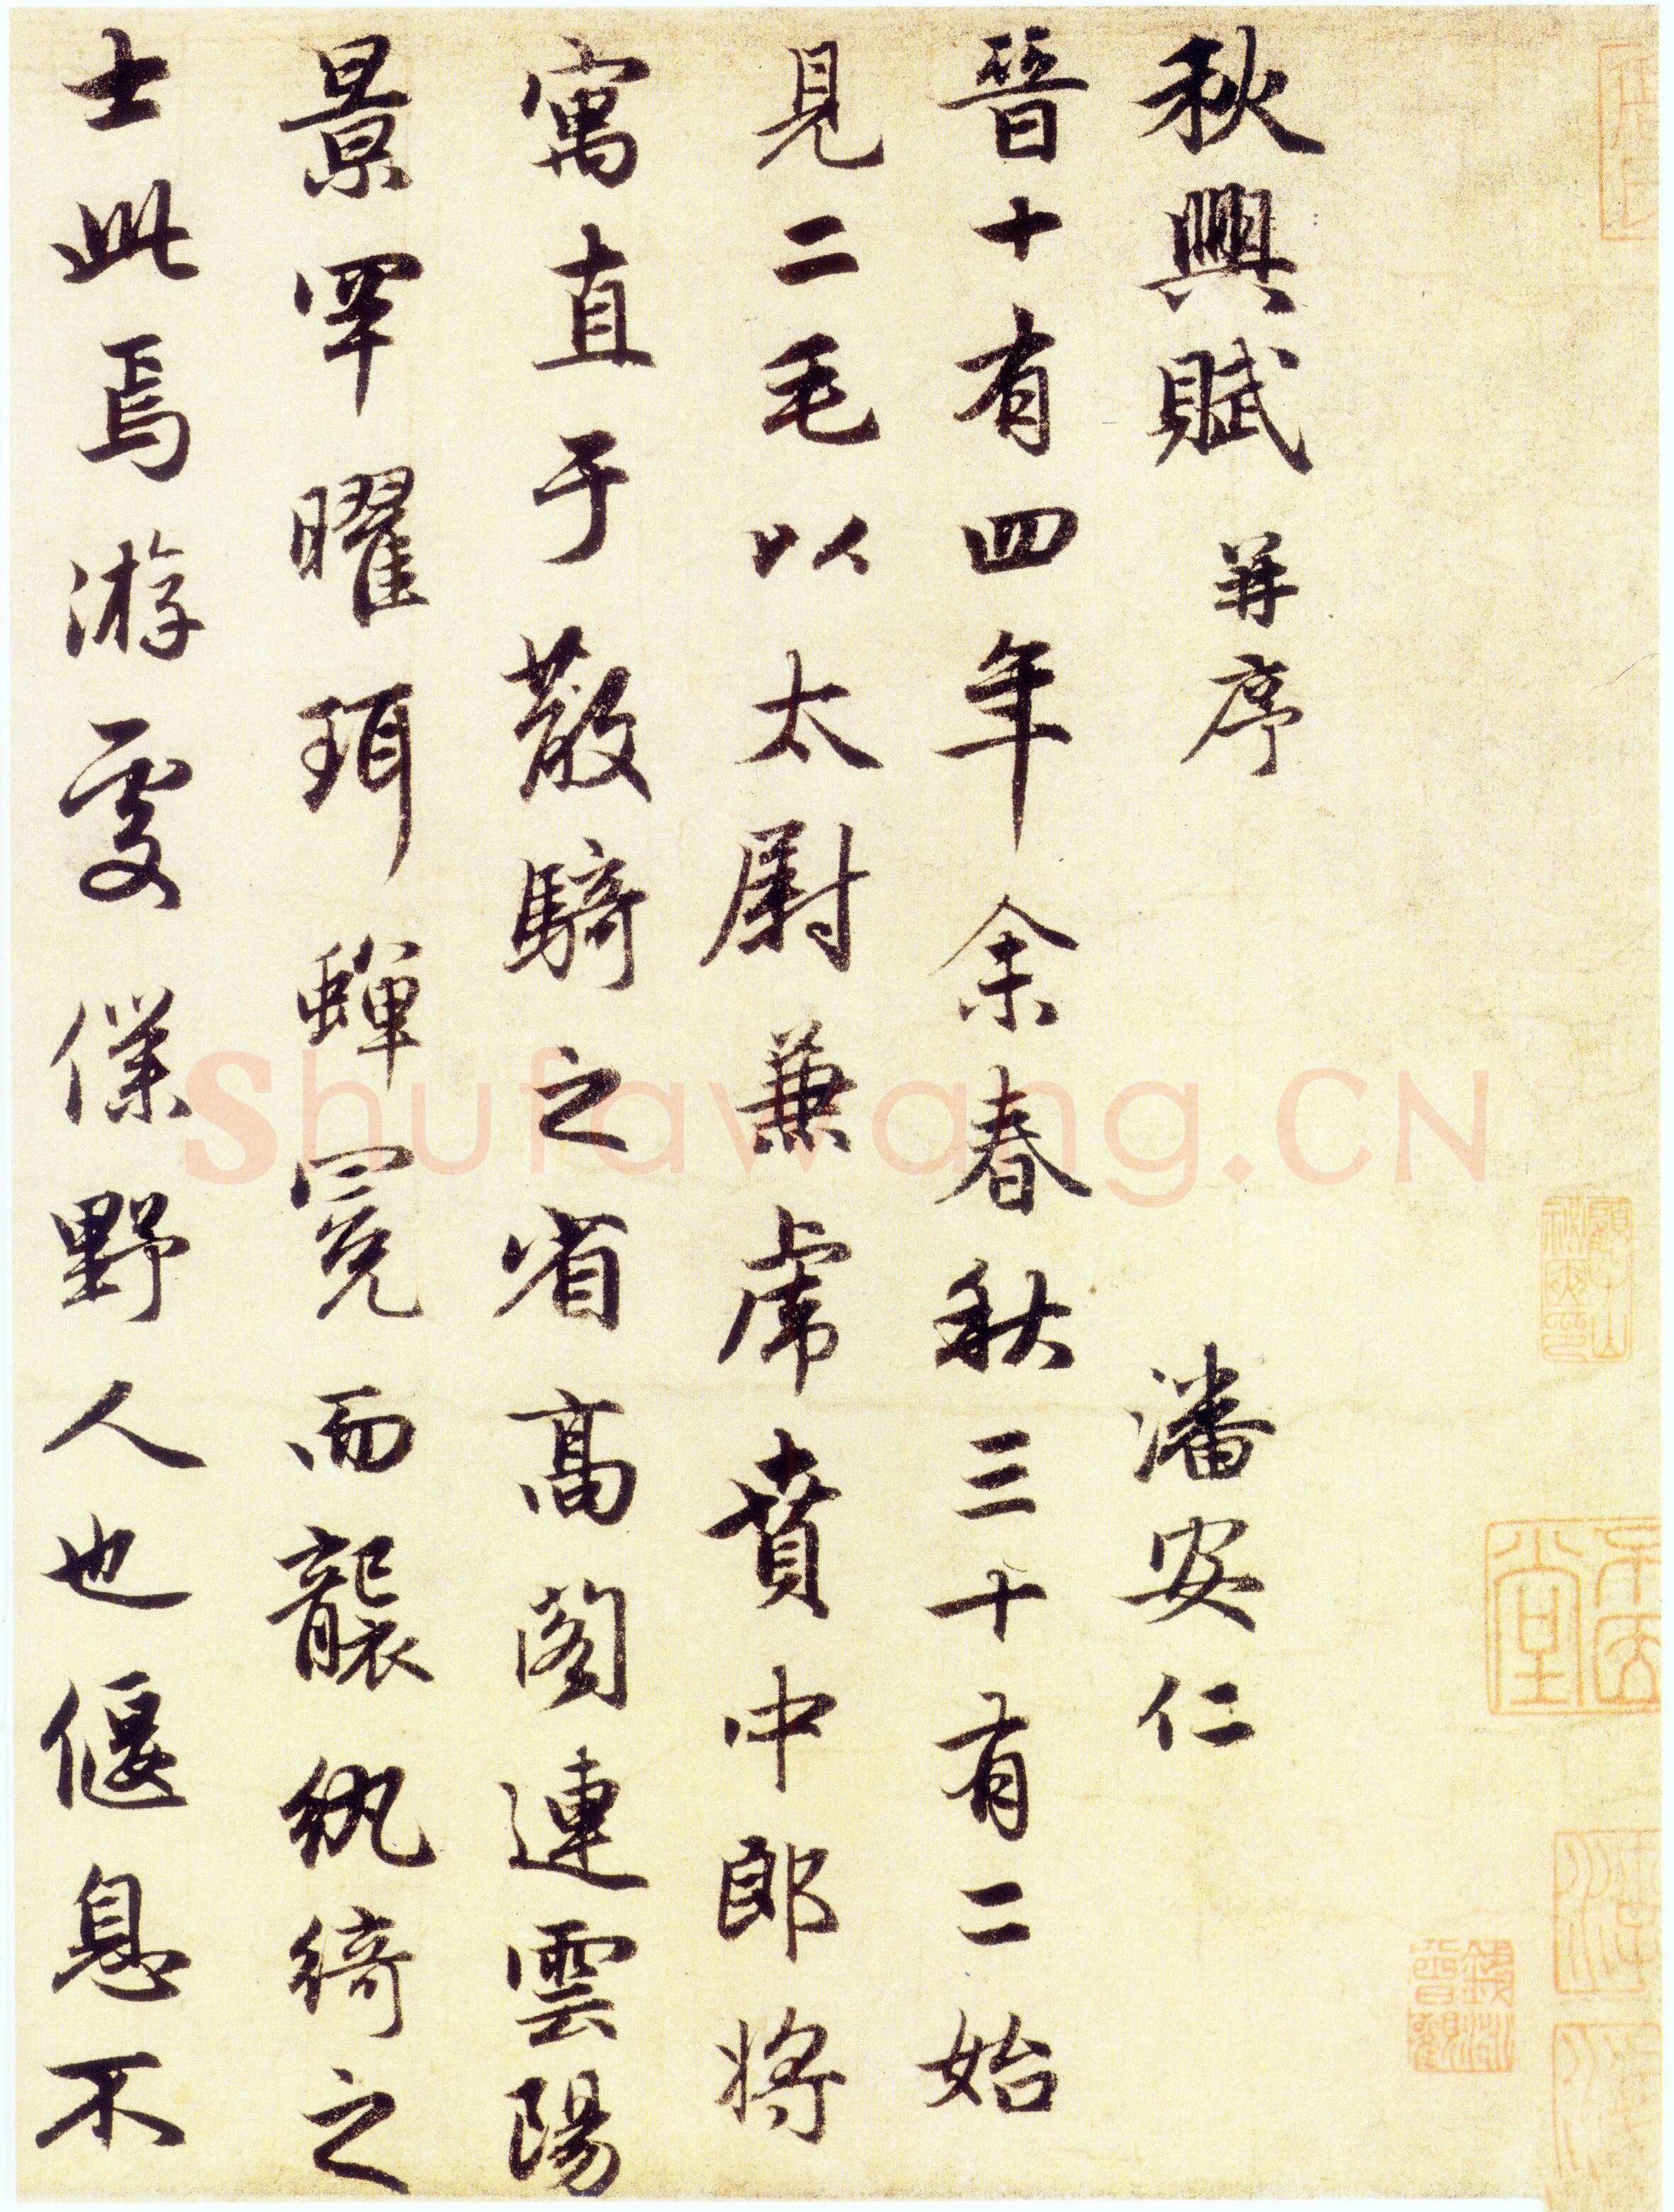 秋興賦 并序 潘安仁
晉十有四年余春秋三十有二始
見二毛以太尉兼虎賁中郎將
寓直于散騎之省高閣連雲陽
景罕曜珥蟬冕而襲紈綺之
士此焉游處僕野人也偃息不
shufawang.CN